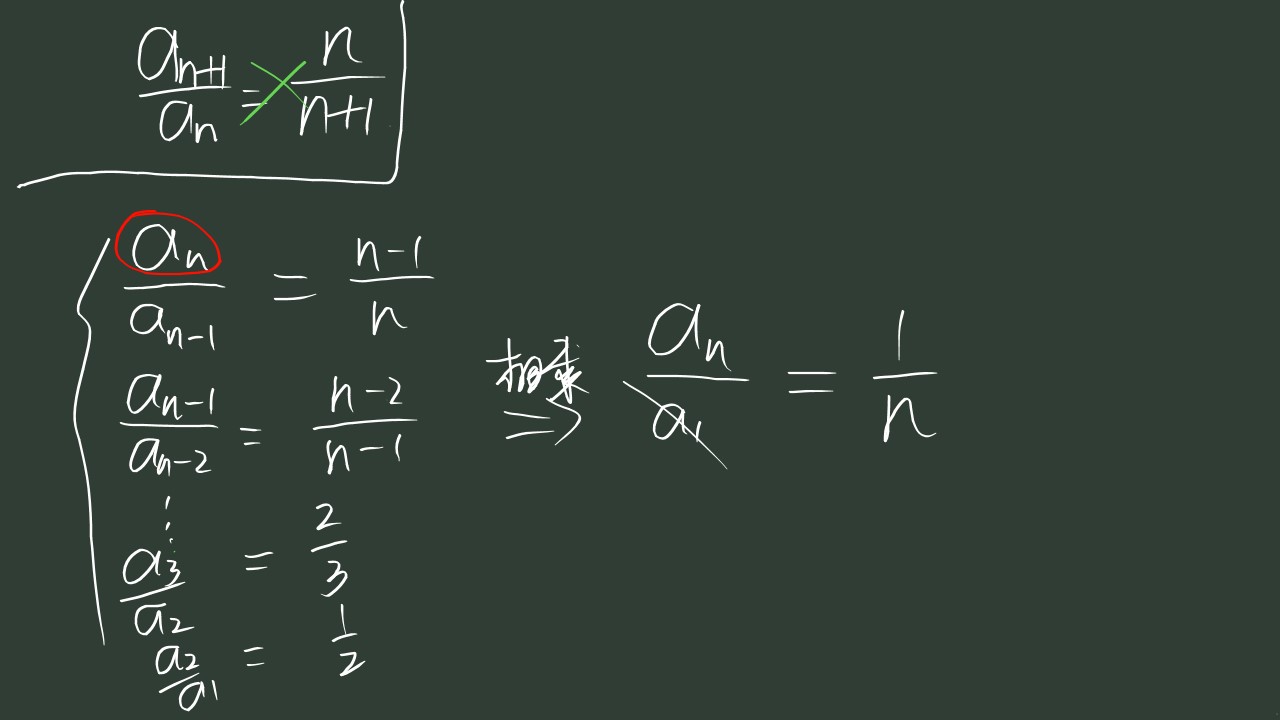 a_{n+1}/a_n = n/(n+1)
a_n/a_{n-1} = (n-1)/n
a_{n-1}/a_{n-2} = (n-2)/(n-1)
⋮
a_3/a_2 = 2/3
a_2/a_1 = 1/2
相乘
⇒ a_n/a_1 = 1/n